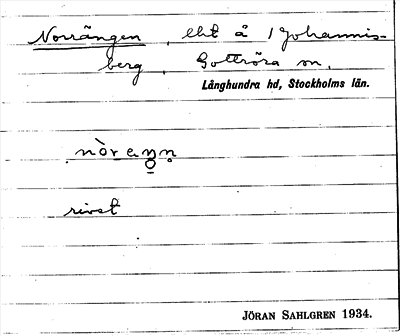 Norrängen, lht å 1 Johannis-
berg, Gottröra sn,
Långhundra hd, Stockholms län.
rivet
JÖRAN SAHLGREN 1934.